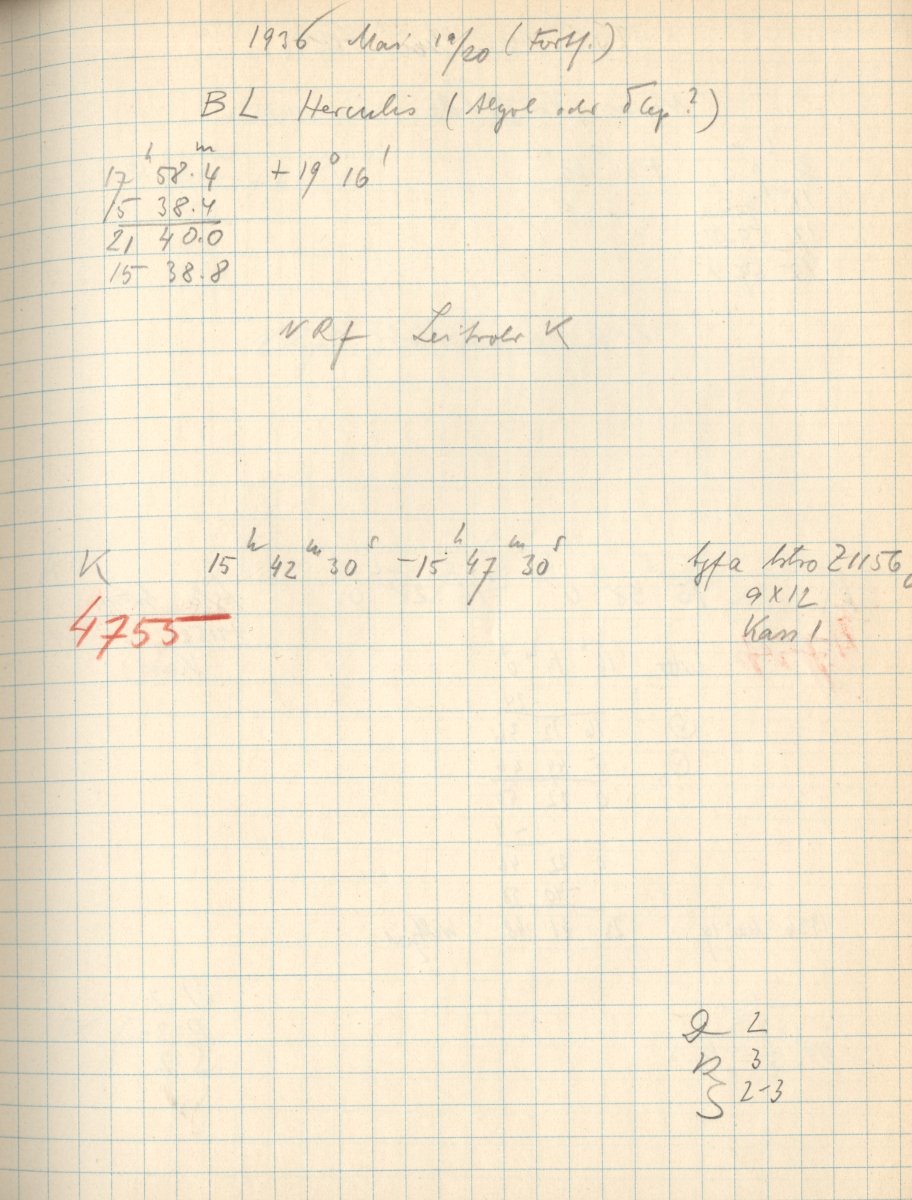 1936 Mai 19/20 (Forts.)
BL Herculis (Algol oder δ Cep?)
17h 58m.4 +19° 16'
15 38.4
21 40.0
15 38.8
K
K 15h 42m 30s - 15h 47m 30s Agfa Astro Z1156
9x12
4755 Kass 1
2
3
2-3